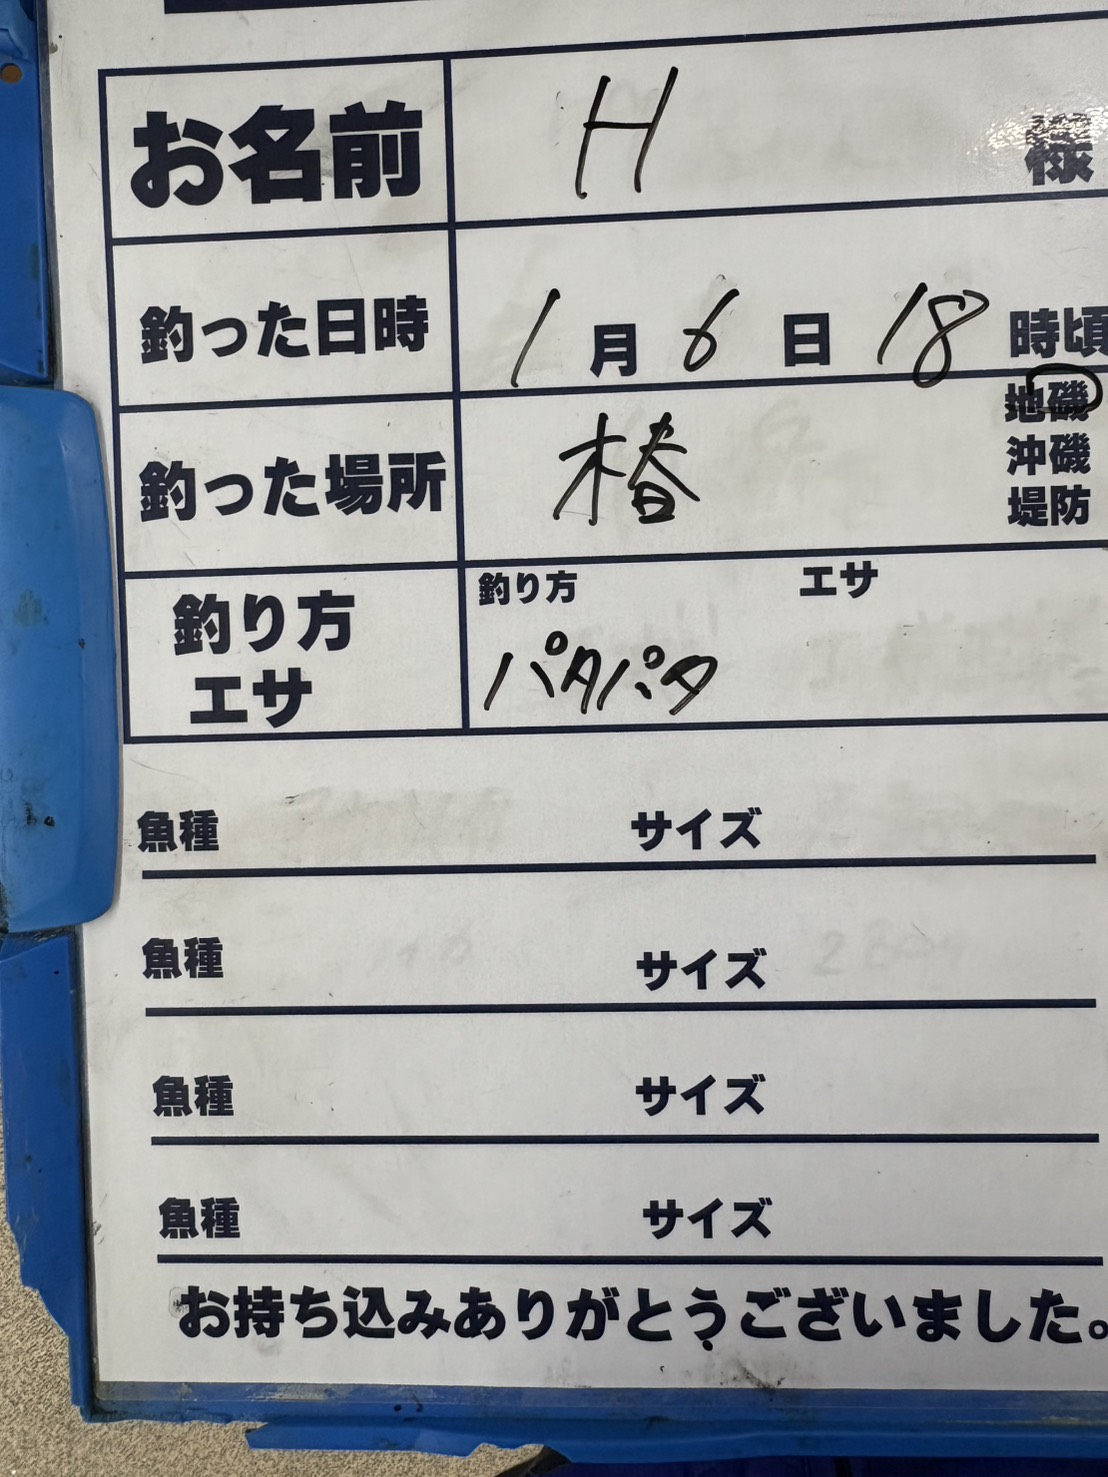 お名前 H 様
釣った日時 1月6日18時頃
釣った場所 椿 地磯
沖磯
堤防
釣り方 エサ
釣り方
エサ
パタパタ
魚種 サイズ
魚種 サイズ
魚種 サイズ
魚種 サイズ
お持ち込みありがとうございました。